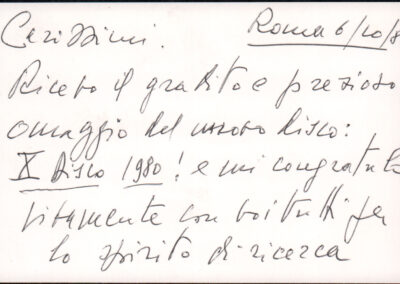 Carissimi. Roma 6/10/8
Ricevo il gradito e prezioso
omaggio del nuovo disco:
X Disco 1980! e mi congratulo
vivamente con voi tutti per
lo spirito di ricerca